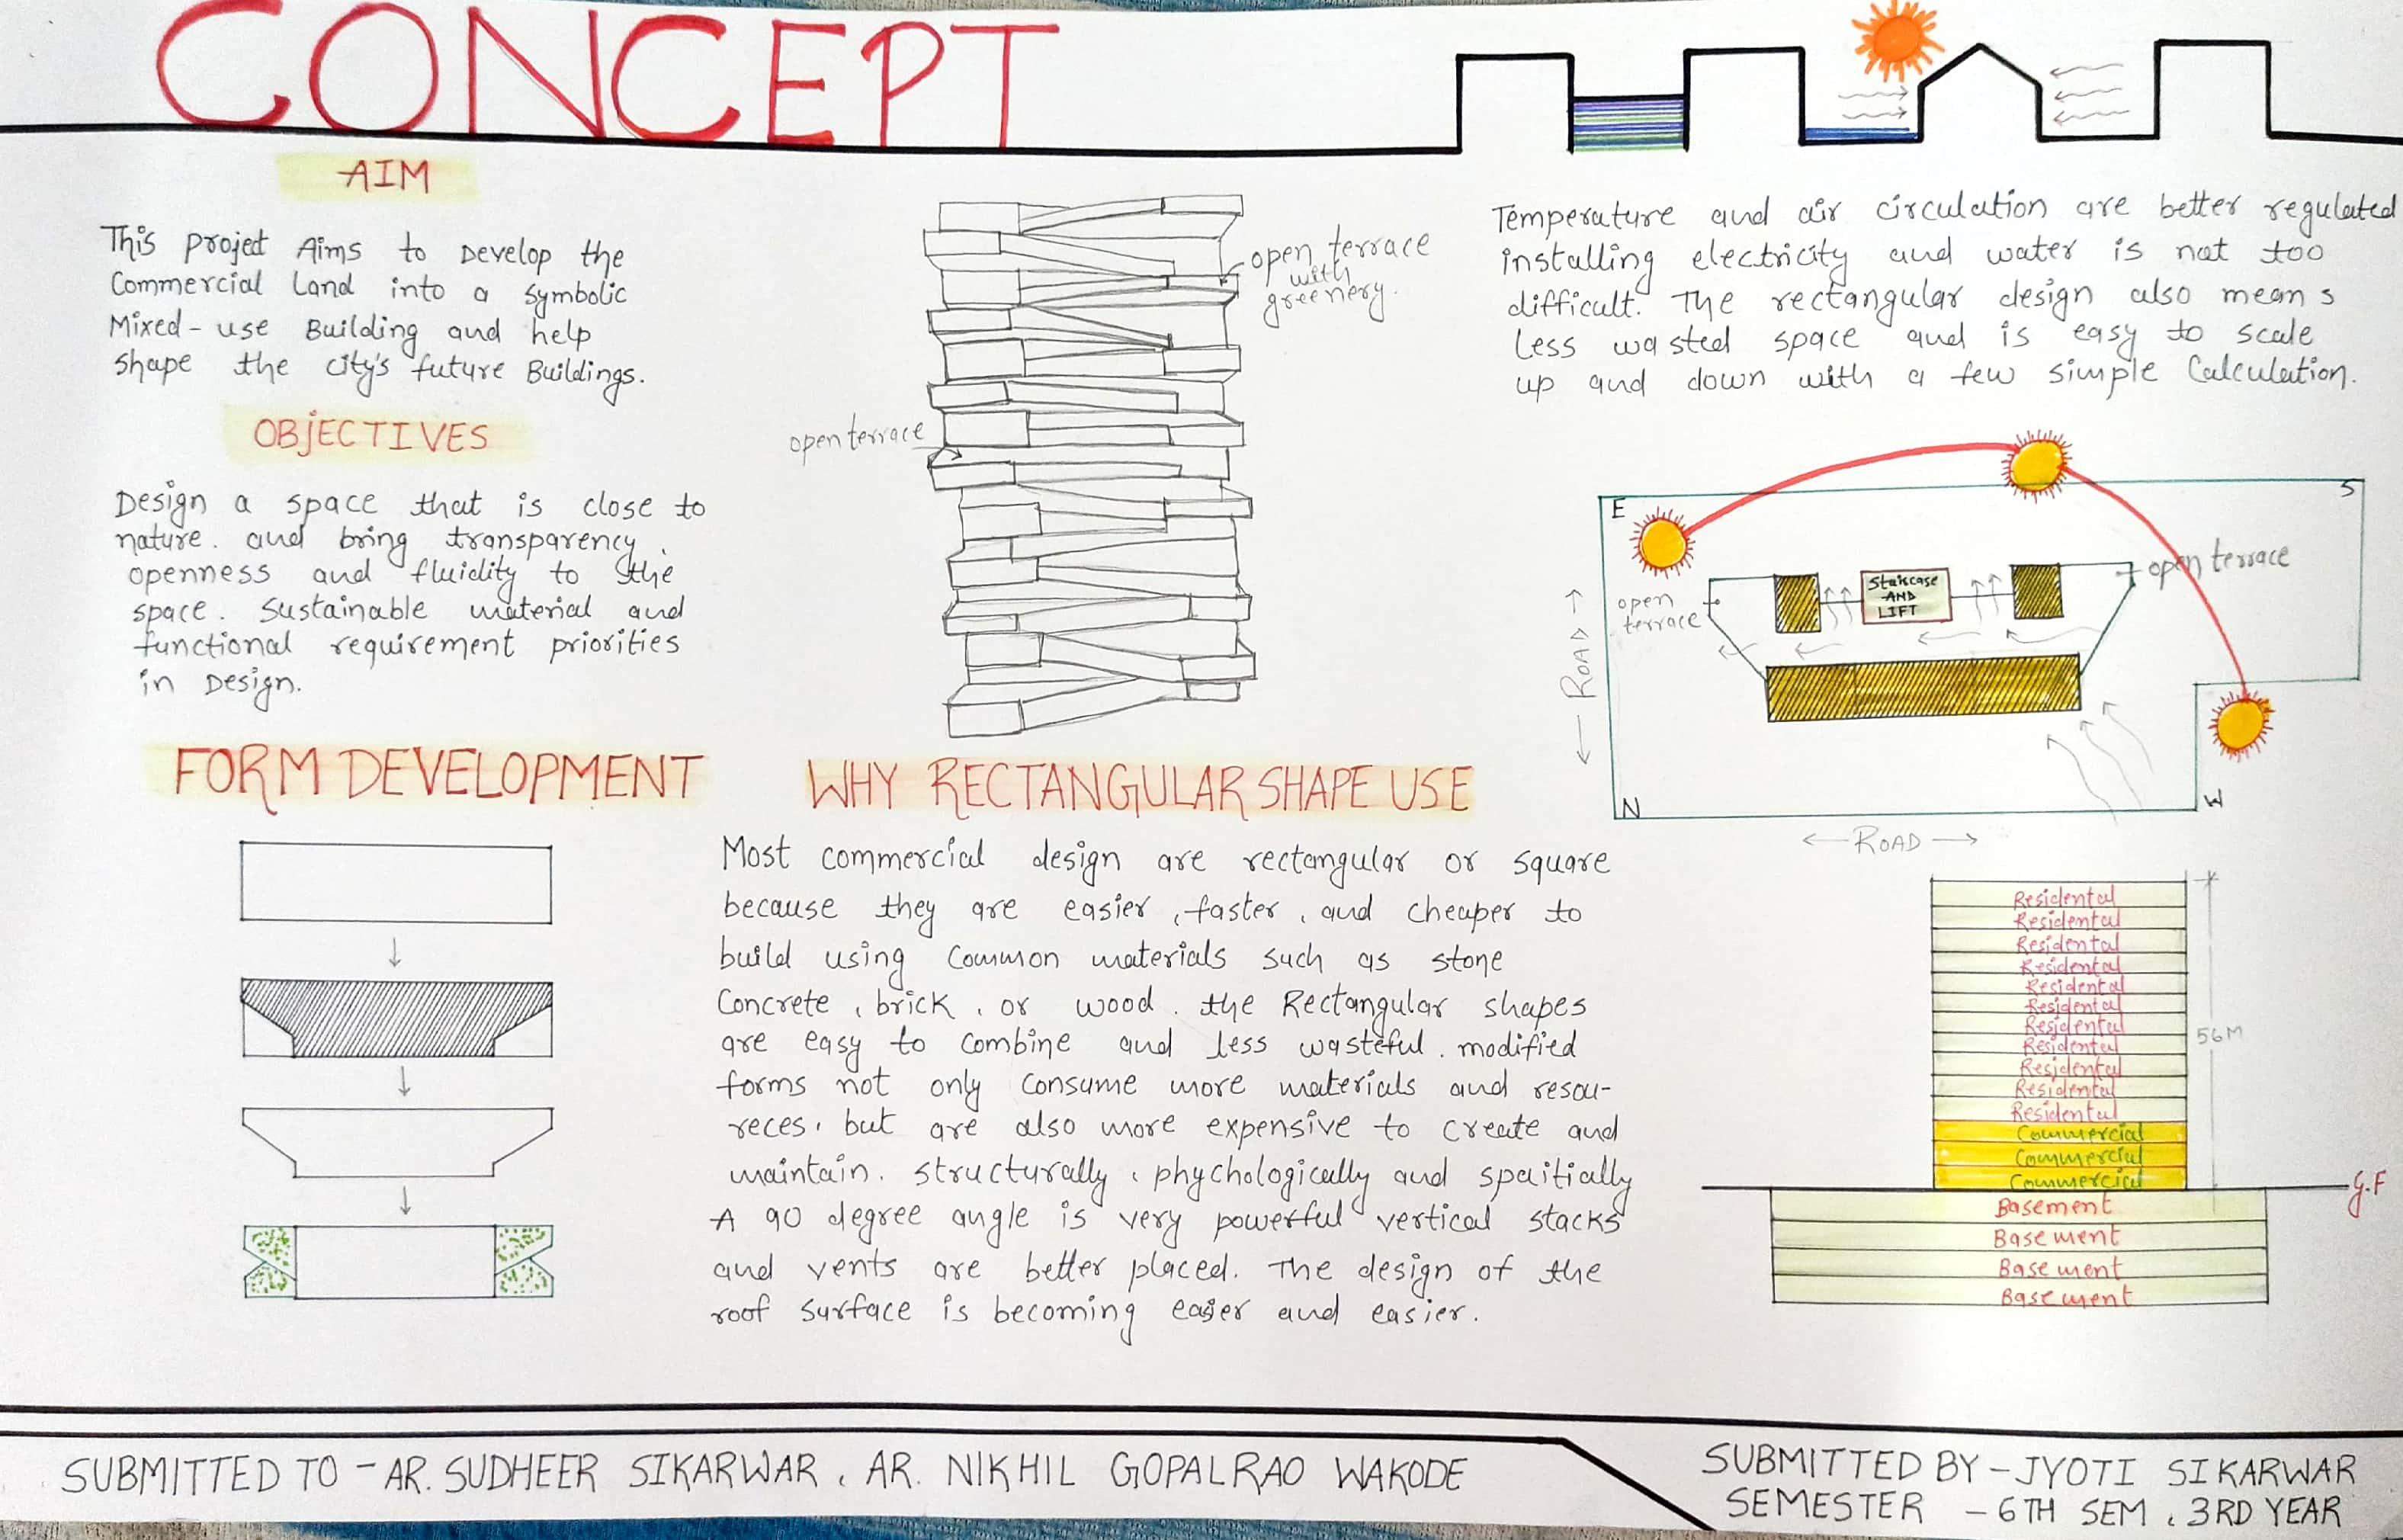 CONCEPT
AIM
This project Aims to Develop the
Commercial Land into a symbolic
Mixed-use Building and help
shape the city's future Buildings.
OBJECTIVES
Design a space that is close to
nature. and bring transparency,
openness and fluidity to the
space. Sustainable material and
functional requirement priorities
in Design.
open terrace
with
greenery.
open terrace
Temperature and air circulation are better regulated
installing electricity and water is not too
difficult. The rectangular design also means
Less wasted space and is easy to scale
up and down with a few simple Calculation.
E
S
open terrace
Staircase
AND
LIFT
open
terrace
ROAD
N
W
ROAD
FORM DEVELOPMENT
WHY RECTANGULAR SHAPE USE
Most commercial design are rectangular or square
because they are easier, faster, and cheaper to
build using Common materials such as stone
Concrete, brick, or wood. the Rectangular shapes
are easy to combine and less wasteful. modified
forms not only consume more materials and resou-
reces, but are also more expensive to create and
maintain. structurally, phychologically and spaitially
A 90 degree angle is very powerful vertical stacks
and vents are better placed. The design of the
roof surface is becoming easier and easier.
Residental
Residental
Residental
Residental
Residental
Residental
Residental
Residental
Residental
Residental
Residental
56M
Commercial
Commercial
Commercial
G.F
Basement
Basement
Basement
Basement
SUBMITTED TO - AR. SUDHEER SIKARWAR, AR. NIKHIL GOPALRAO WAKODE
SUBMITTED BY - JYOTI SIKARWAR
SEMESTER - 6TH SEM, 3RD YEAR